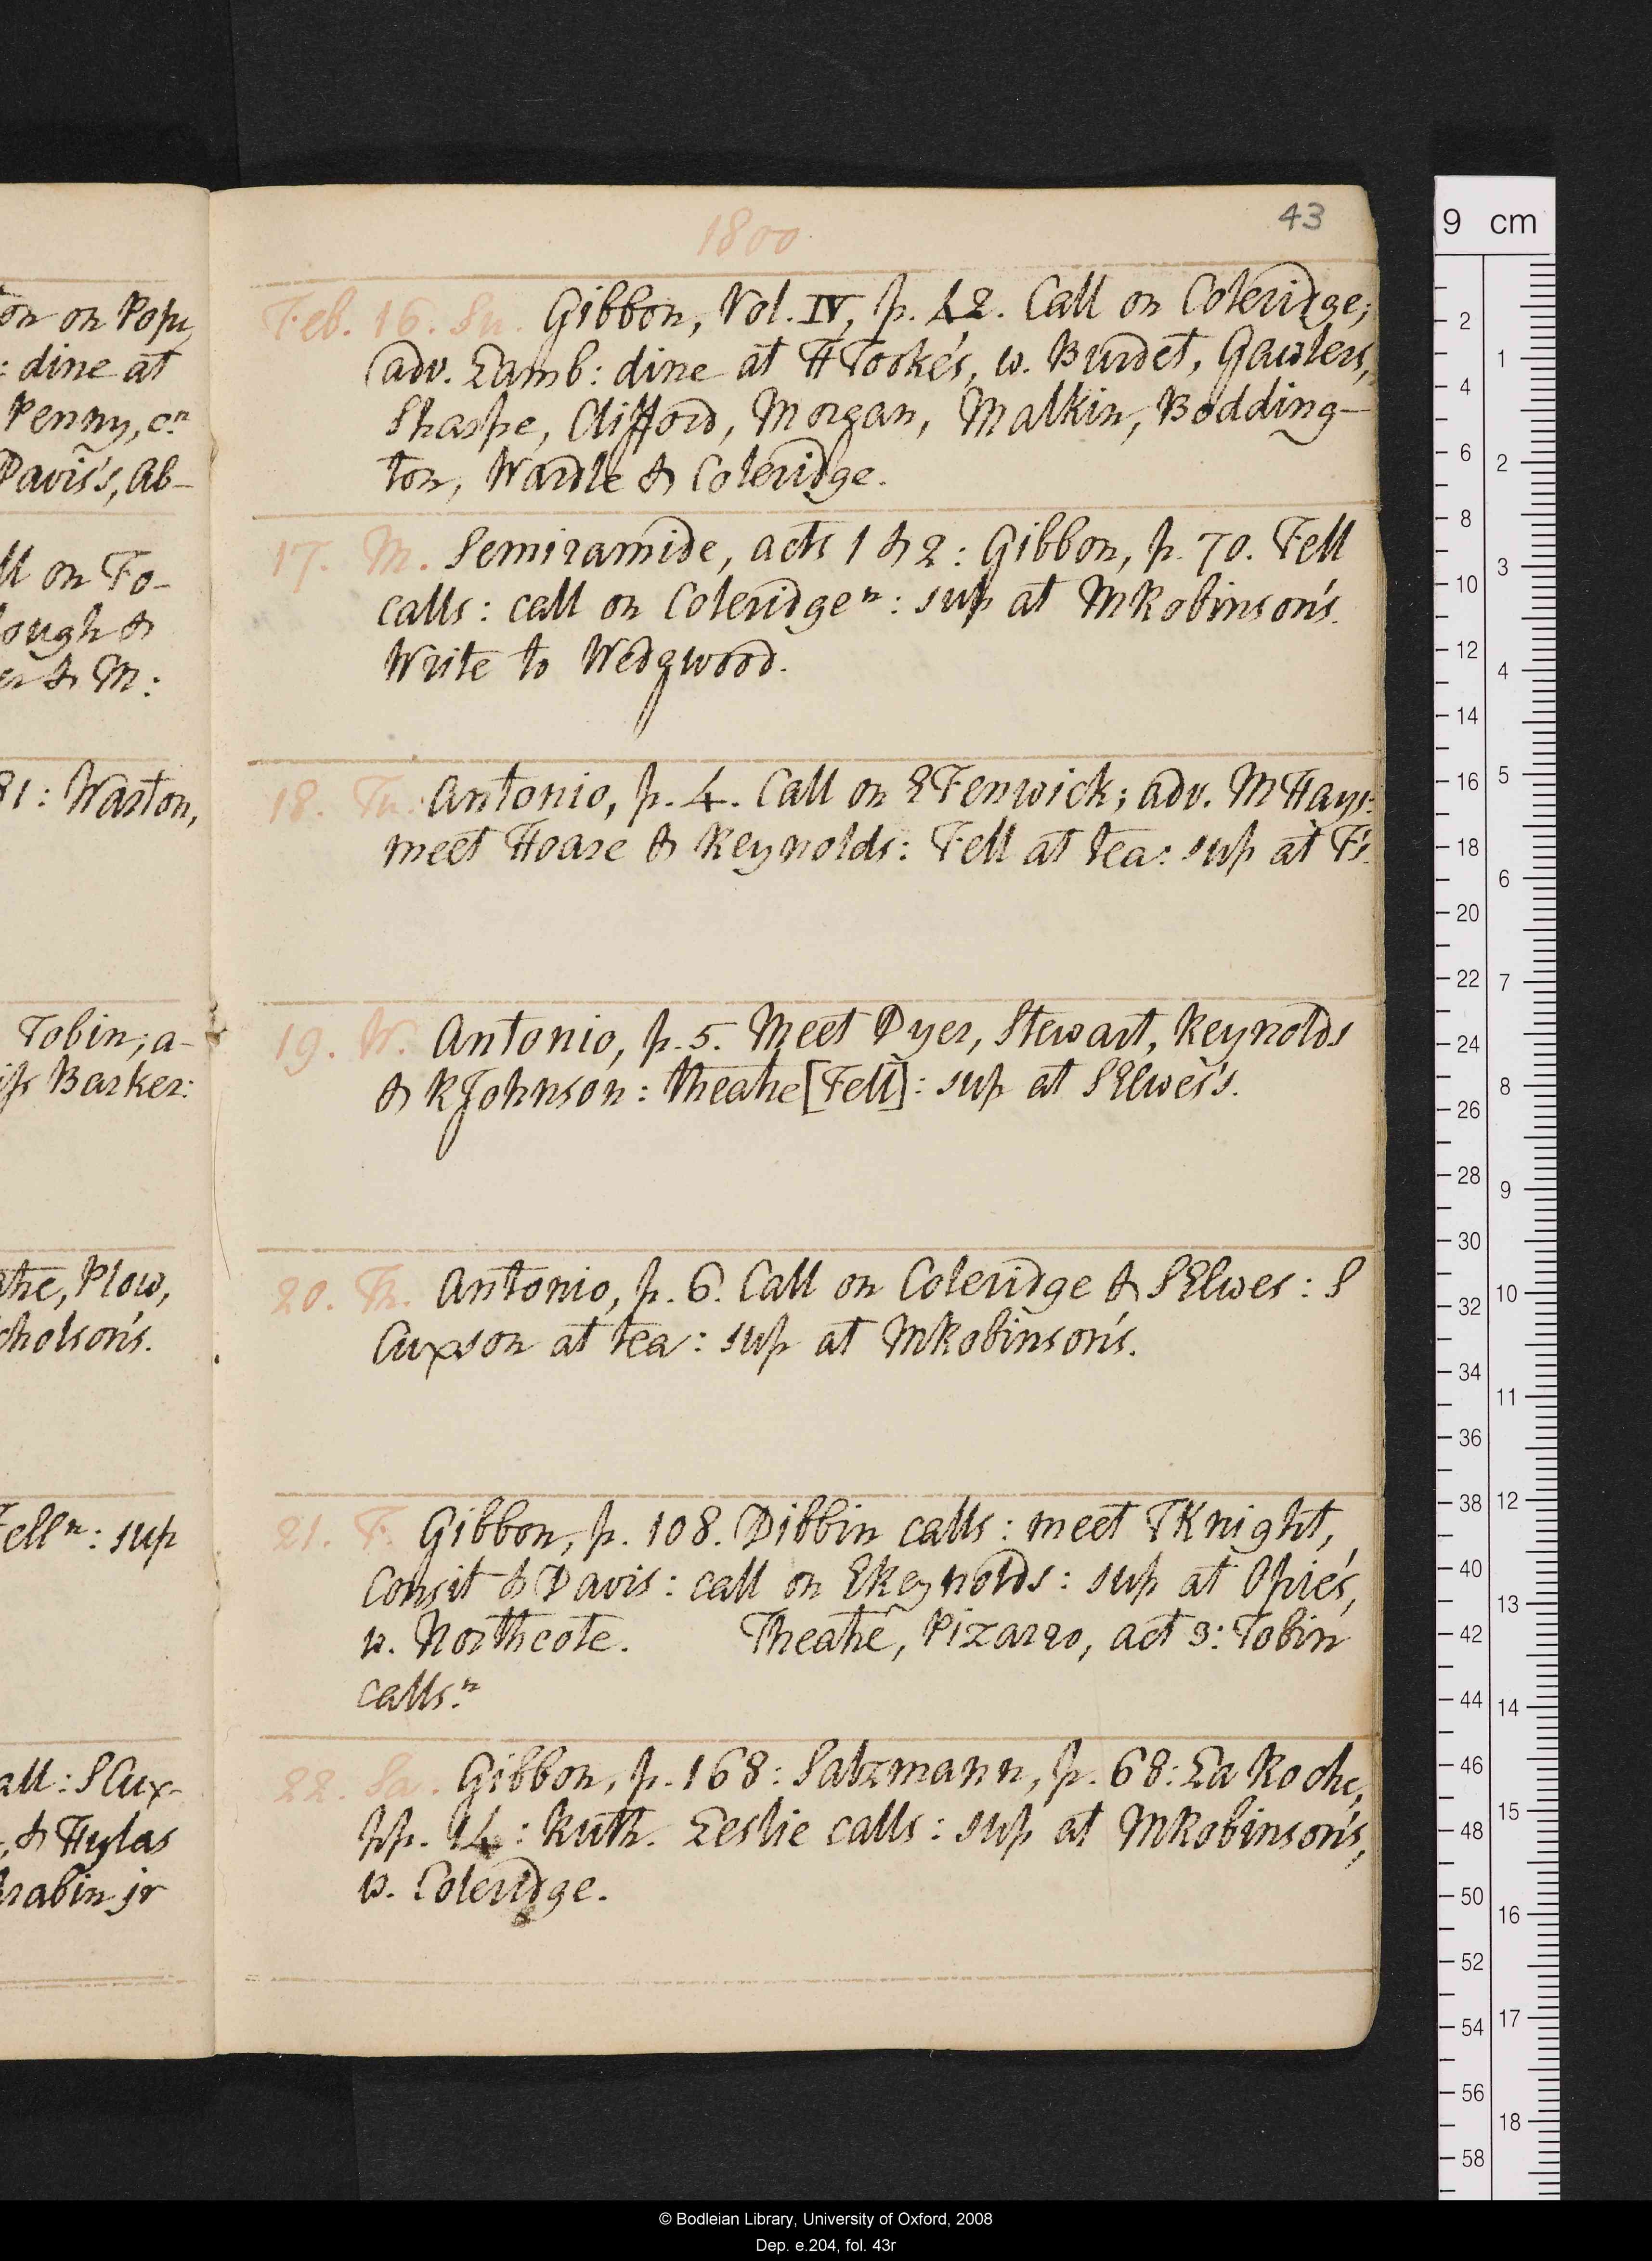 1800
43
Feb. 16. Su. Gibbon, Vol. IV, p. 42. Call on Coleridge;
adv. Lamb: dine at H Tooke's, w. Burdet, Gawlers,
Sharpe, Clifford, Morgan, Malkin, Bodding-
ton, Wardle & Coleridge.
17. M. Semiramide, acts 1 & 2: Gibbon, p. 70. Fell
calls: call on Coleridge n: sup at M Robinson's.
Write to Wedgwood.
18. Tu. Antonio, p. 4. Call on E Fenwick; adv. M Hays:
meet Hoare & Reynolds: Fell at tea: sup at F's.
19. W. Antonio, p. 5. Meet Dyer, Stewart, Reynolds
& R Johnson: theatre [Fell]: sup at S Elwes's.
20. Th. Antonio, p. 6. Call on Coleridge & S Elwes: S
Cuxson at tea: sup at M Robinson's.
21. F. Gibbon, p. 108. Dibbin calls: meet T Knight,
Consit & Davis: call on E Reynolds: sup at Opie's,
w. Northcote. Theatre, Pizarro, act 3: Tobin
calls. n
22. Sa. Gibbon, p. 168: Salzmann, p. 68: La Roche,
pp. 14: Ruth. Leslie calls: sup at M Robinson's,
w. Coleridge.
on on Pope,
: dine at
Penny, cn
Davis's, Ab-
ll on Fo-
lough &
er & M:
81: Warton,
Tobin; a-
Barker:
Plow,
cholson's.
Fell n: sup
all: S Cux-
, & Hylas
rabin jr
9 cm
2
4
6
8
10
12
14
16
18
20
22
24
26
28
30
32
34
36
38
40
42
44
46
48
50
52
54
56
58
1
2
3
4
5
6
7
8
9
10
11
12
13
14
15
16
17
18
© Bodleian Library, University of Oxford, 2008
Dep. e.204, fol. 43r